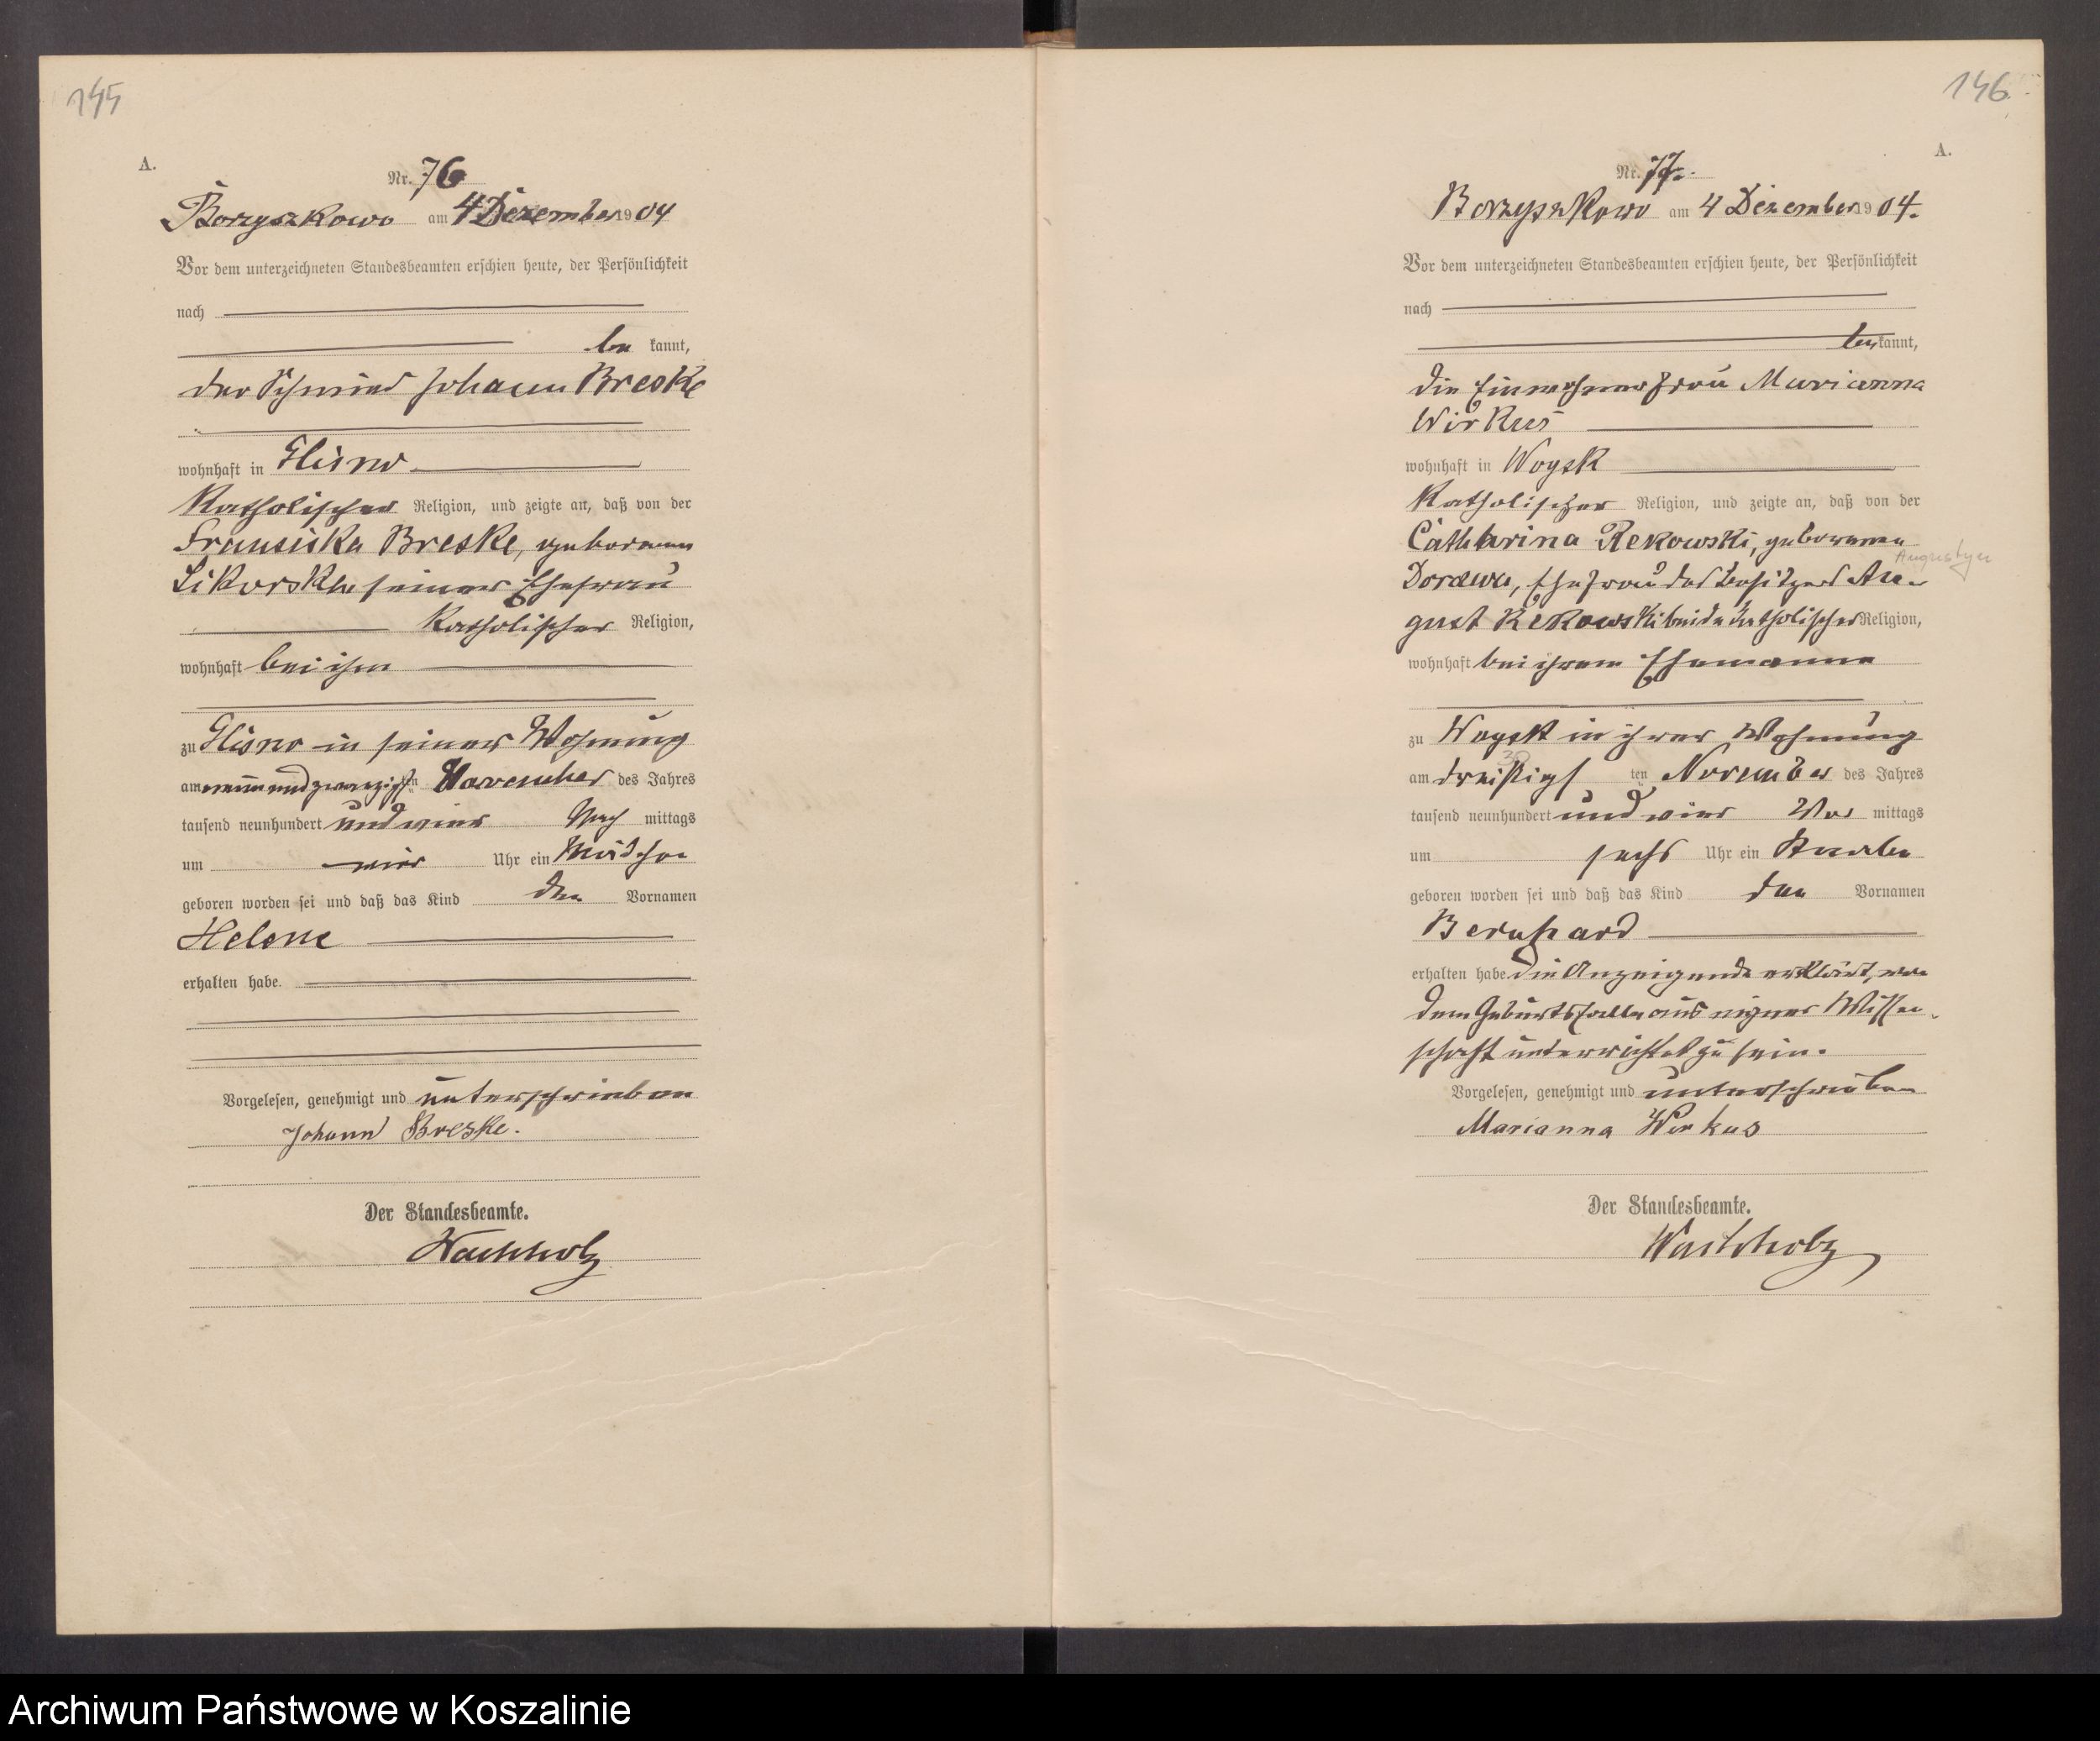 145
A.
Nr. 76
Borzyszkowo am 4 Dezember 1904
Vor dem unterzeichneten Standesbeamten erschien heute, der Persönlichkeit
nach
be kannt,
der Schmied Johann Breske
wohnhaft in Glisno
Katholischer Religion, und zeigte an, daß von der
Fransiska Breske, geborenen
Sikorska seiner Ehefrau
Katholischer Religion,
wohnhaft bei ihm
zu Glisno in seiner Wohnung
am neunundzwanzigsten November des Jahres
tausend neunhundert und vier Nach mittags
um vier Uhr ein Mädchen
geboren worden sei und daß das Kind den Vornamen
Helene
erhalten habe.
Vorgelesen, genehmigt und unterschrieben
Johann Breske.
Der Standesbeamte.
Wachholz
146
A.
Nr. 77.
Borzyszkowo am 4 Dezember 1904.
Vor dem unterzeichneten Standesbeamten erschien heute, der Persönlichkeit
nach
be kannt,
die Einwohnerfrau Marianna
Wirkus
wohnhaft in Woysk
Katholischer Religion, und zeigte an, daß von der
Catharina Rekowski, geborenen
Augustyn
Dorawa, Ehefrau des Besitzers Au-
gust Rekowski beide katholischer Religion,
wohnhaft bei ihrem Ehemanne
zu Woysk in ihrer Wohnung
30
am dreißigsten November des Jahres
tausend neunhundert und vier Vor mittags
um sechs Uhr ein Knabe
geboren worden sei und daß das Kind den Vornamen
Bernhard
erhalten habe die Anzeigende erklärt, von
dem Geburtsfalle aus eigner Wissen-
schaft unterrichtet zu sein.
Vorgelesen, genehmigt und unterschrieben
Marianna Wirkus
Der Standesbeamte.
Wachholz
Archiwum Państwowe w Koszalinie